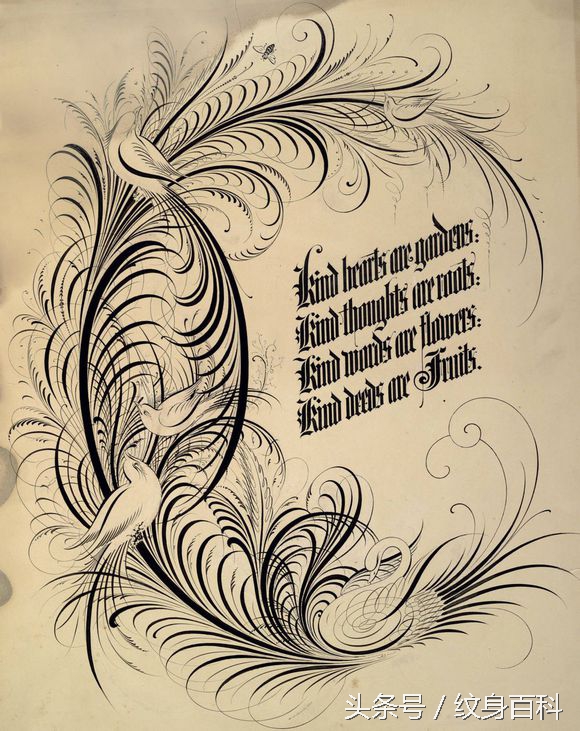 Kind hearts are gardens:
Kind thoughts are roots:
Kind words are flowers:
Kind deeds are Fruits.
头条号 / 纹身百科